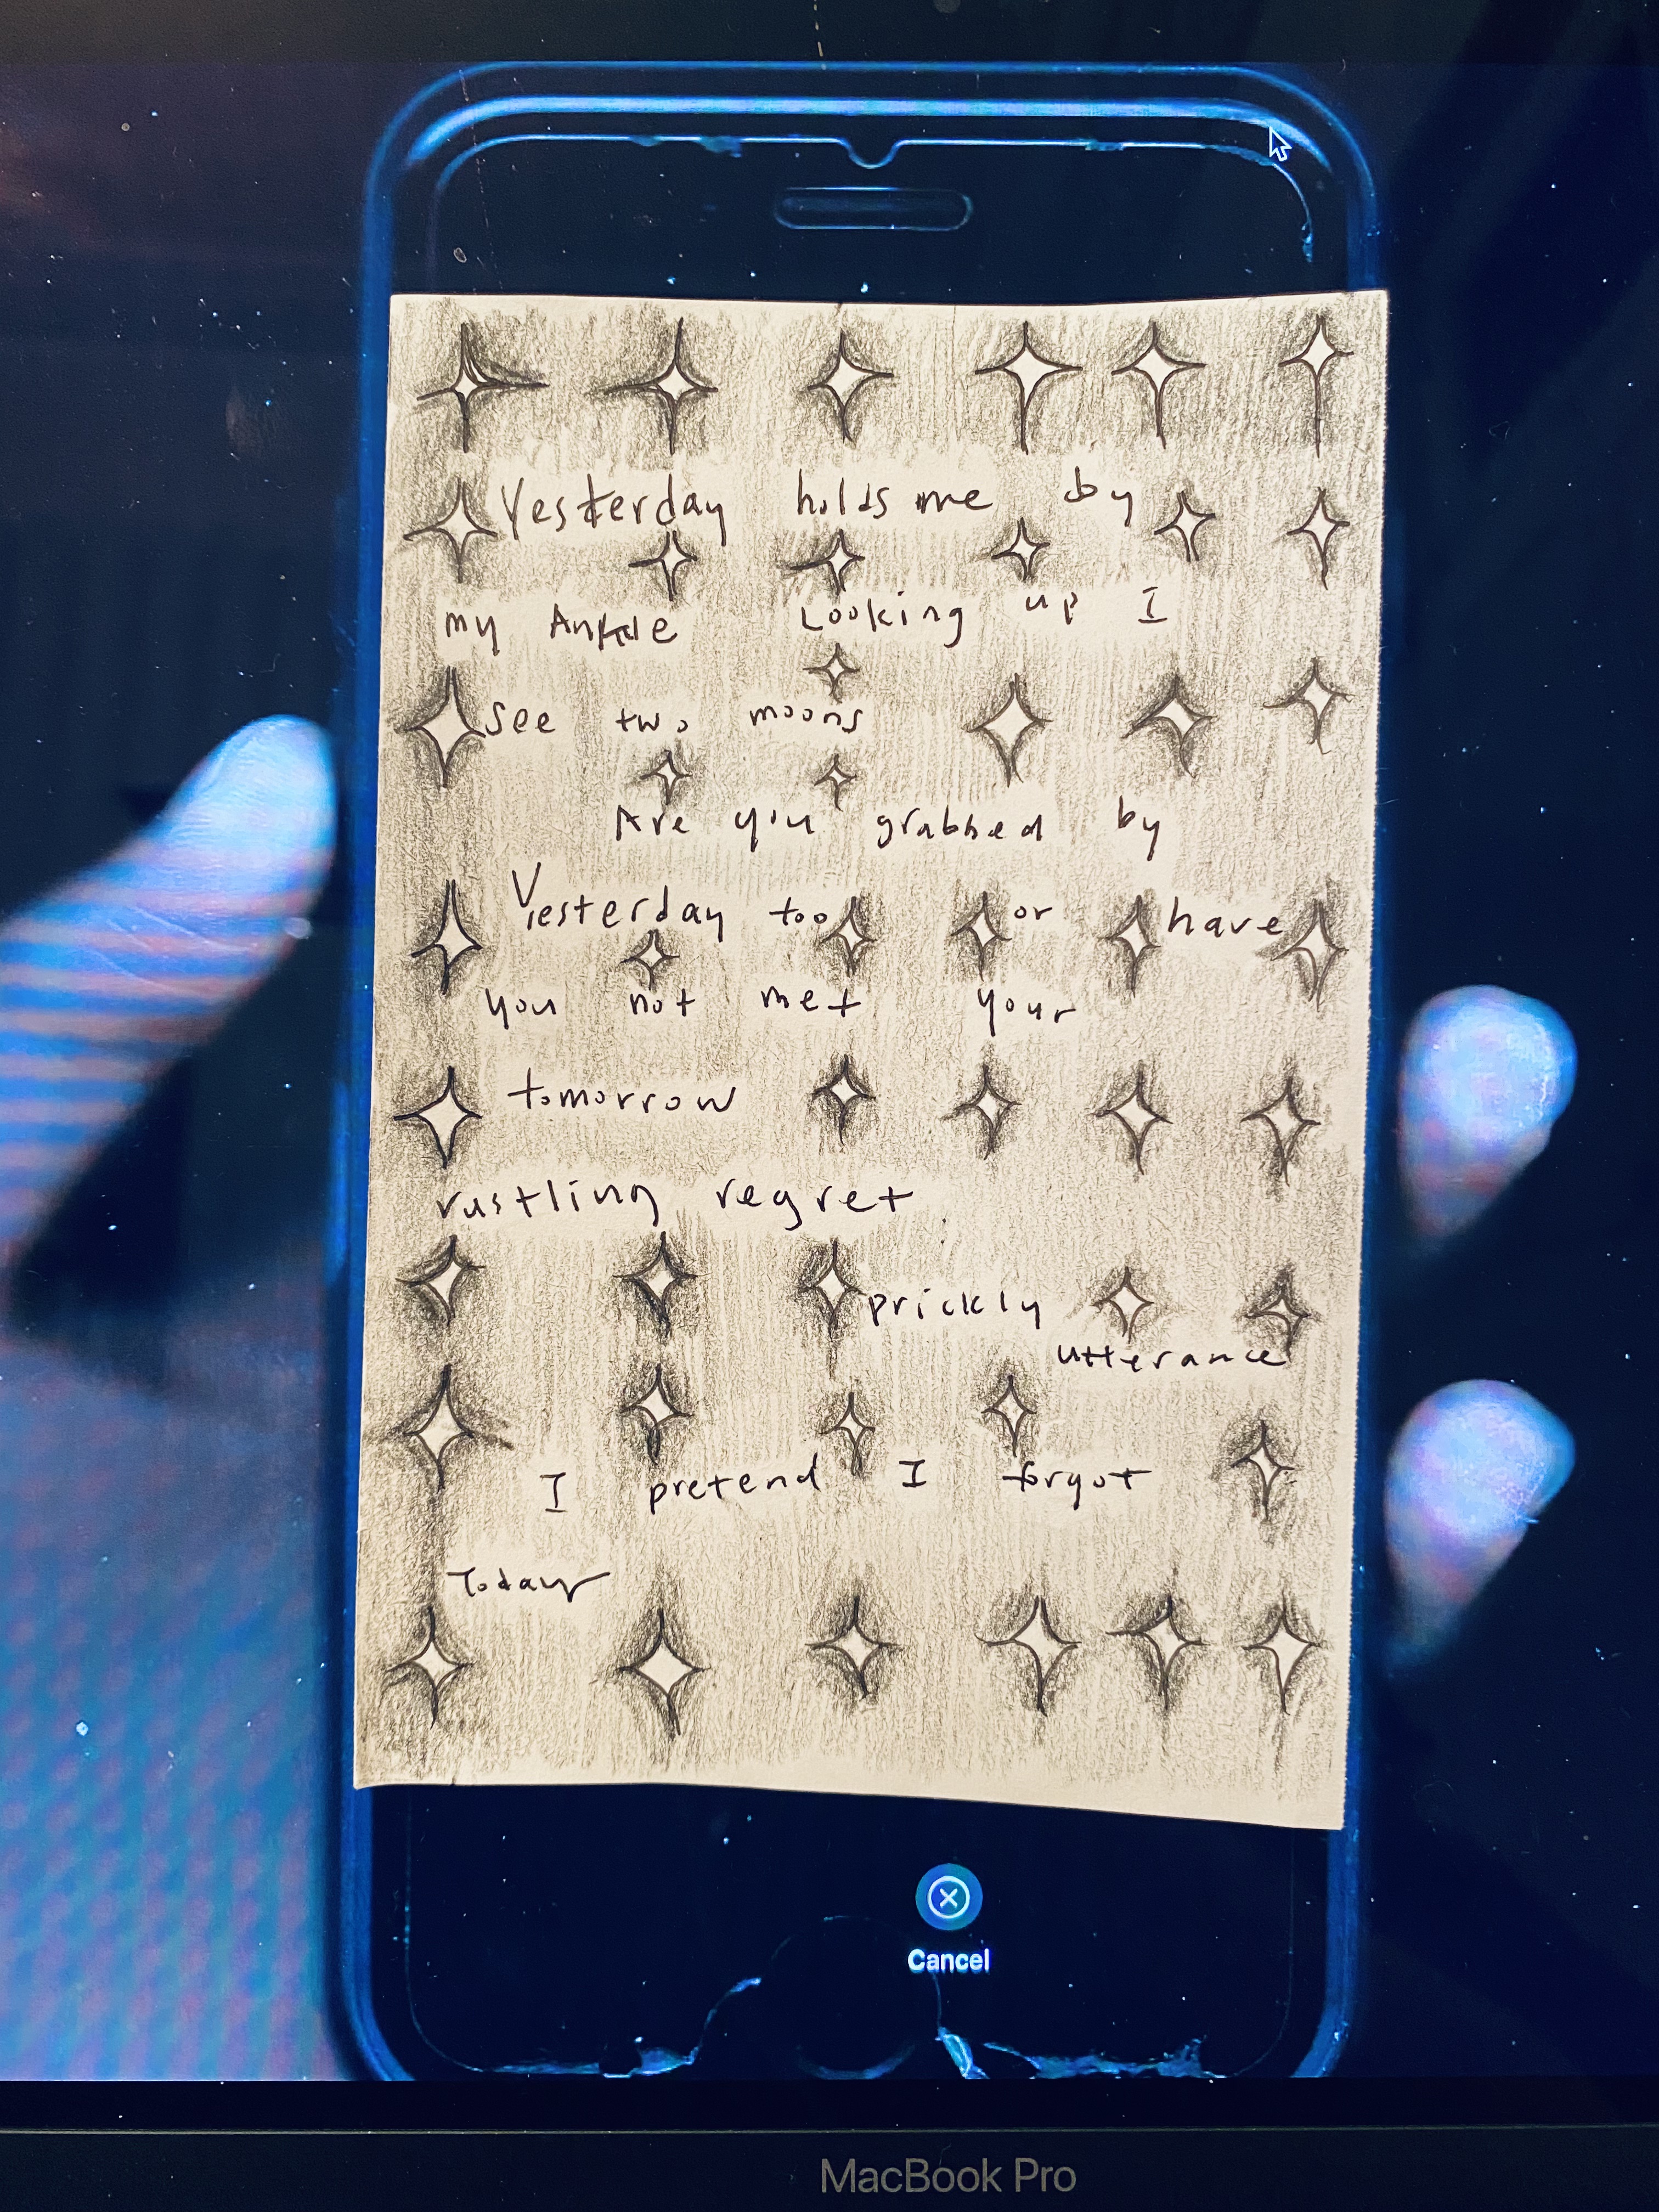 Yesterday holds me by
my Ankle Looking up I
see two moons
Are you grabbed by
Yesterday too or have
you not met your
tomorrow
rustling regret
prickly
utterance
I pretend I forgot
Today
Cancel
MacBook Pro